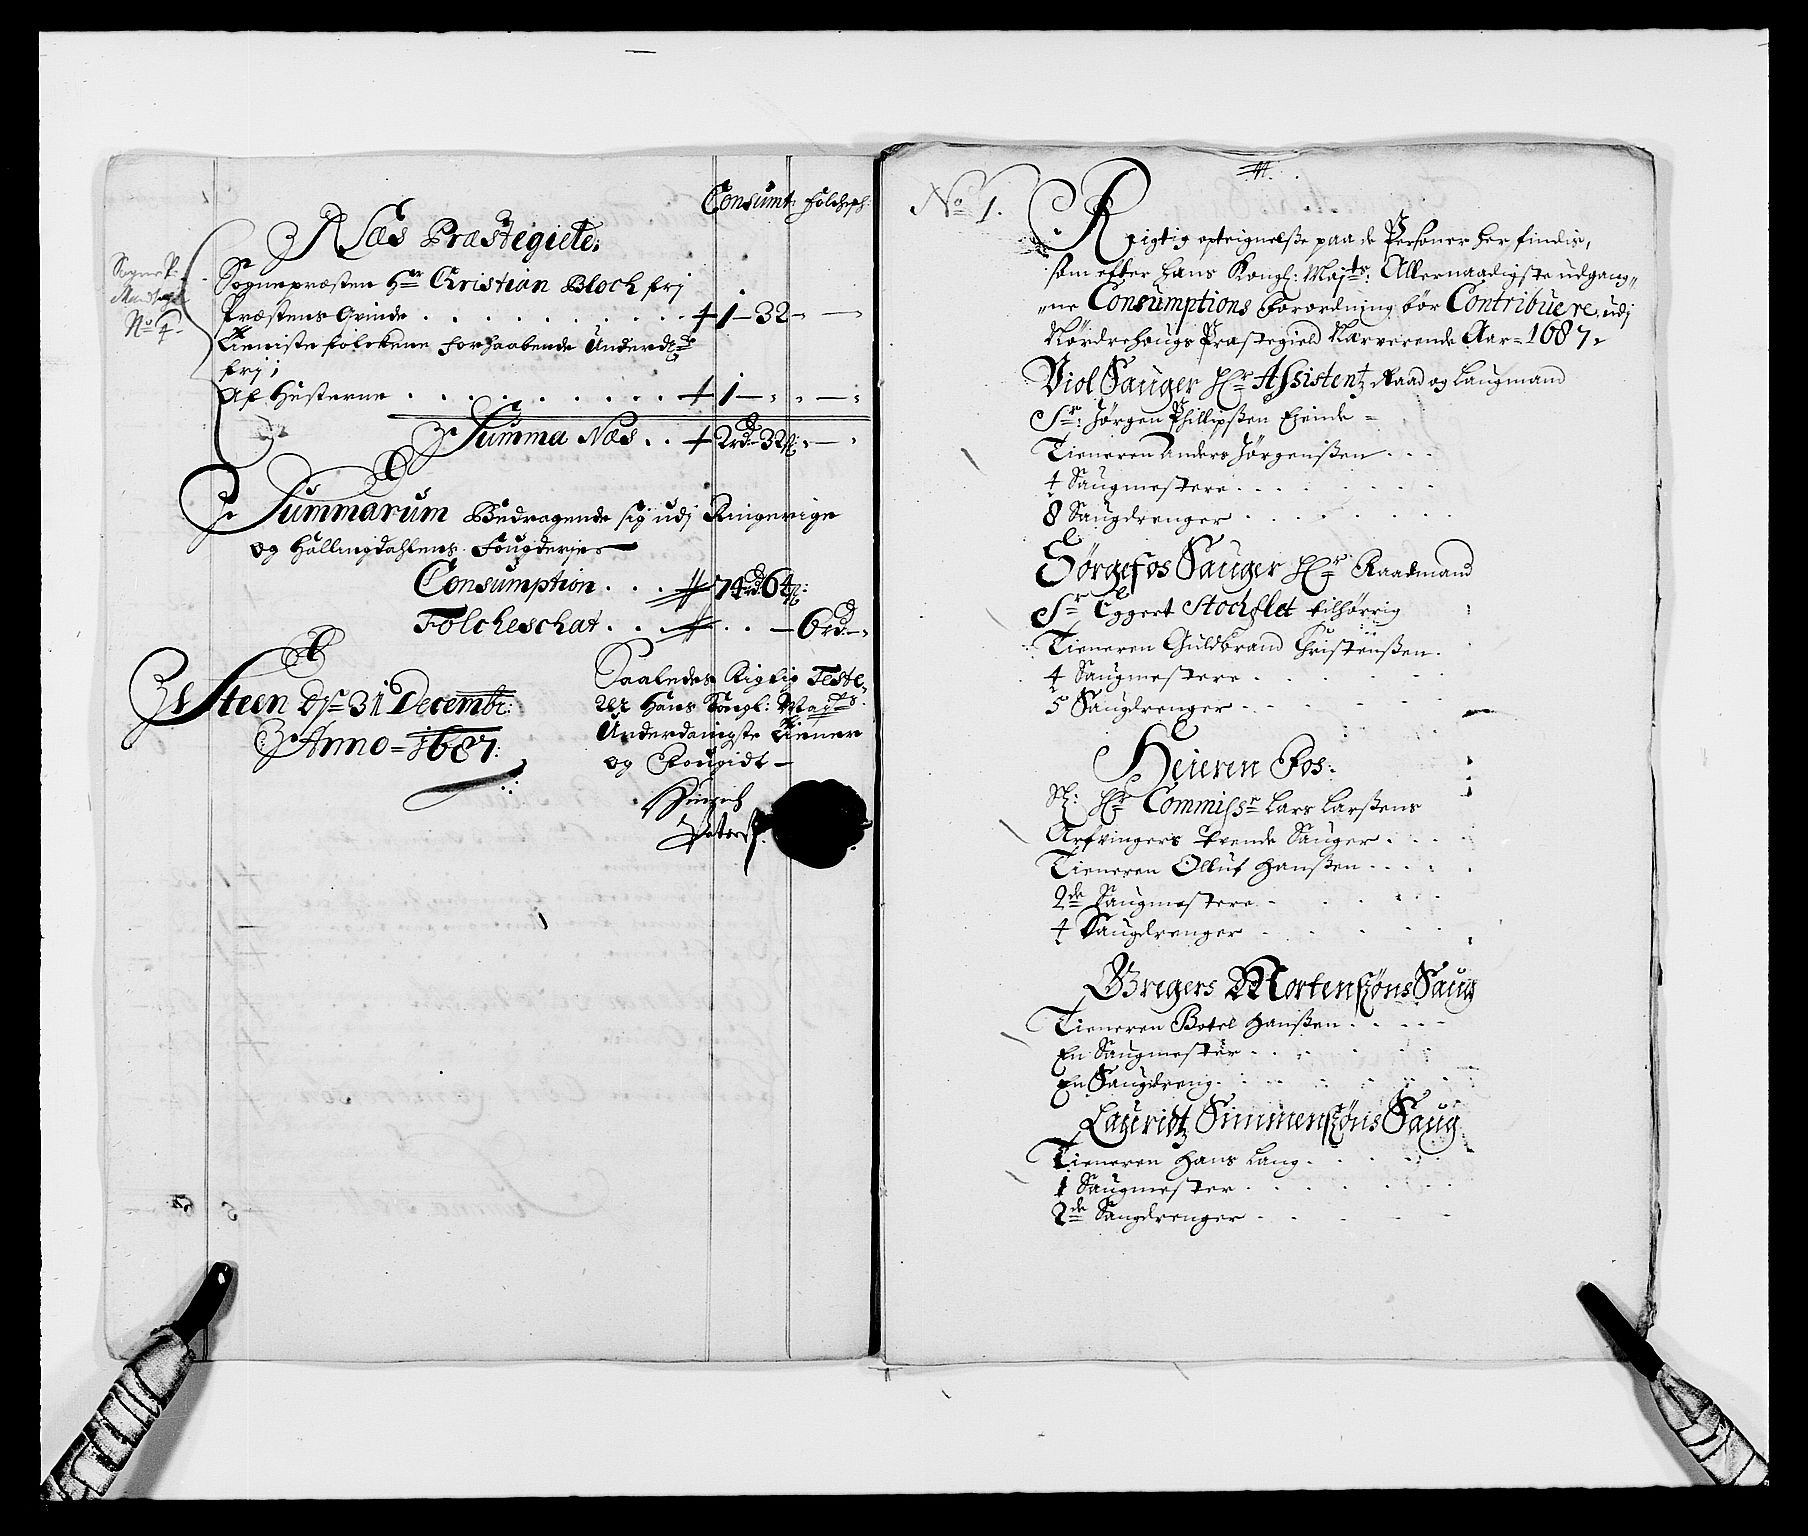 Consumt: Folchesch:
Næs Præstegield:
Sogne P:
Mandtal
No 4.
Sognepræsten Hr Christian Bloch frj
Præstens Qvinde . . . . . . . 1 – 32 –
Tieniste folckene forhaabende Underd:
frj ;
Af Husterne . . . . . . . 1 –
Summa Næs . . 2 rd 32 ſſ
Summarum Bedragende sig udj Ringerige
og Hallingdahlens Fougderje
Consumption . . . 74 rd 64 ſſ:
Folcheschat . . . . . – 6 rd –
Steen Dn 31 Decembr:
Anno = 1687:
Saaledes Rigtig Teste-
rer Hans Kongl: Mayts
Underdanigste Tiener
og Fougidt –
Hinrich
Peters
No 1.
Rigtig opteignelsse paa de Persohner her findis,
som efter Hans Kongl: Mayts: Allernaadigste udgang,,
,,ne Consumptions Forordning bör Contribuere, udj
Nordrehougs Præstegield Nærverende Aar = 1687,
Viol Sauger Hr Assistentz Raad og Laugmand
Sr: Jörgen Phillipssen Eiende =
Tieneren Anders Jörgenssen . . .
4 Saugmestere . . . . . .
8 Saugdrenger . . . . . .
Hörgefos Sauger Hr Raadmand
Sr Eggert Stochflet tilhörrig
Tieneren Guldbrand Christenssen .
4 Saugmestere . . . . . .
5 Saugdrenger . . . . . .
Heieren Fos.
Sl: Hr Commissr Lars Larssens
Arfvingers Tvende Sauger . . .
Tieneren Olluf Hanssen . . . .
2de Saugmestere . . . . . .
4 Saugdrenger . . . . . .
Gregers Mortenssöns Saug
Tieneren Botel Hanssen . . . . .
En Saugmester . . . . . .
En Saugdreng . . . . . .
Lauridtz Simmenssöns Saug
Tieneren Hans Lang . . . . .
1 Saugmester . . . . . .
2de Saugdrenger . . . . .